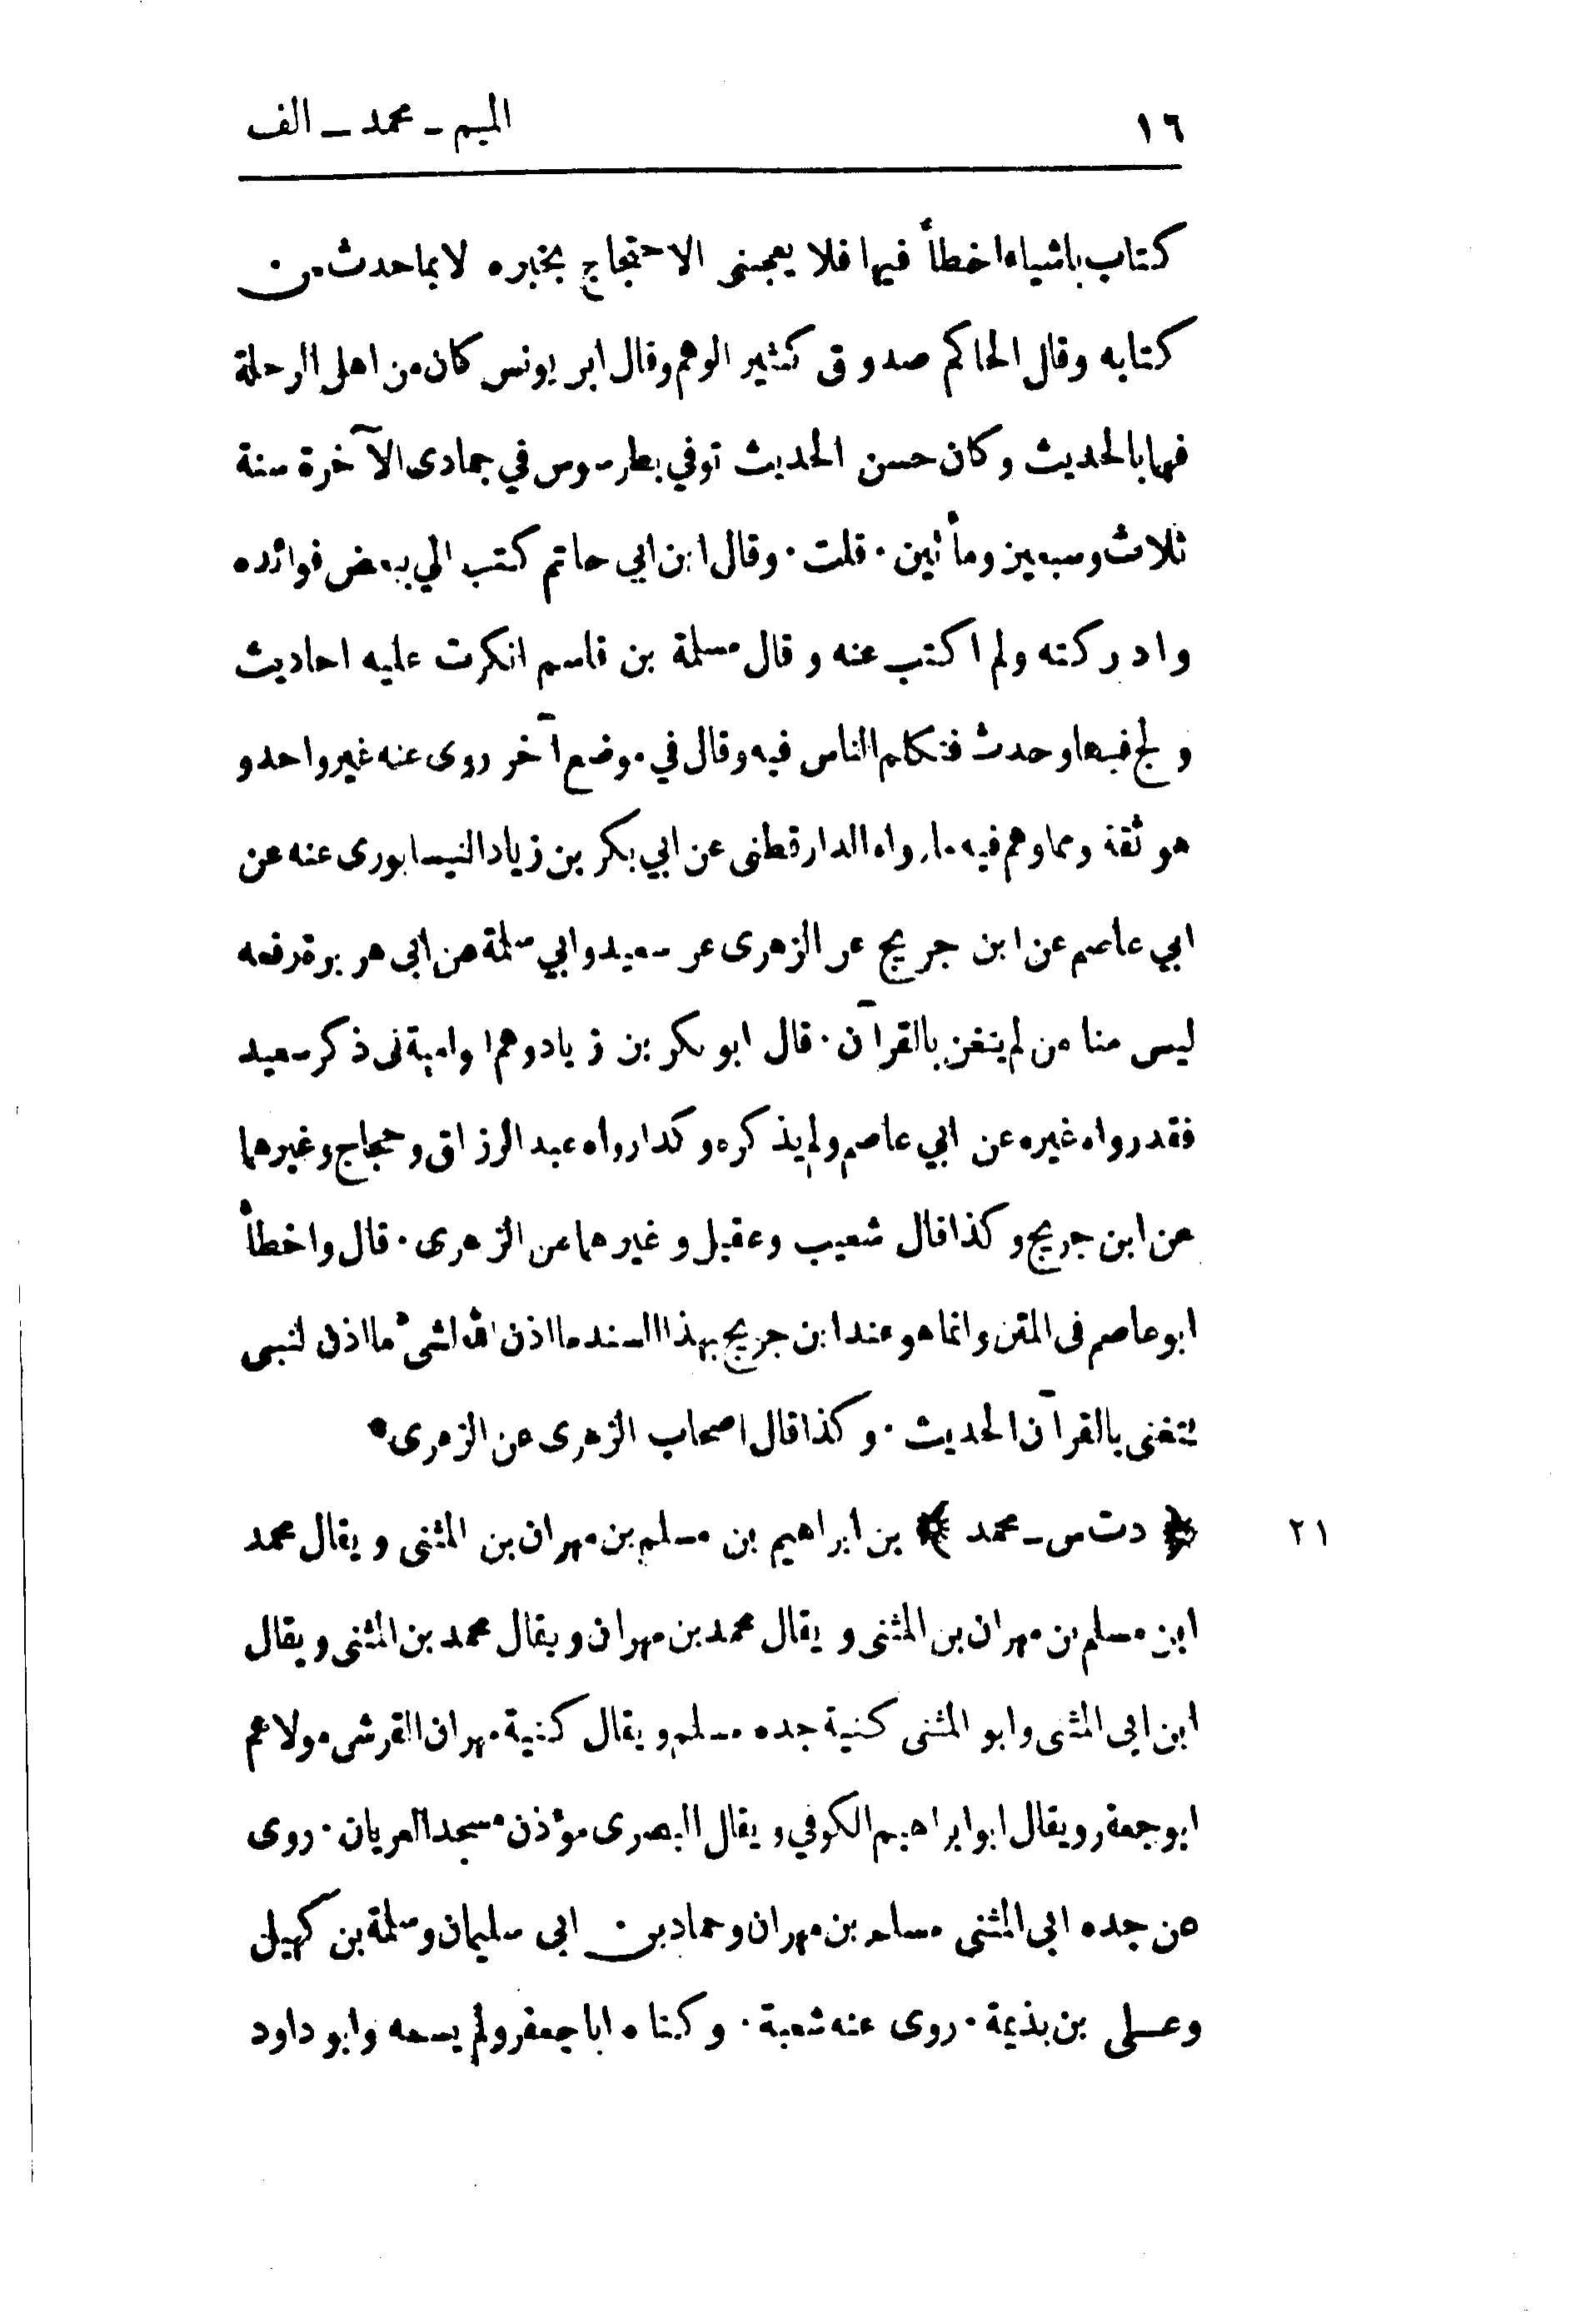 ١٦
الميم ـ محمد ـ الف
كتاب باشياء اخطأ فيها فلا يعجبنى الاحتجاج بخبره لا بما حدث من
كتابه وقال الحاكم صدوق كثير الوهم وقال ابن يونس كان من اهل الرحلة
فهما بالحديث وكان حسن الحديث توفي بطرسوس في جمادى الآخرة سنة
ثلاث وسبعين ومأتين . قلت . وقال ابن ابي حاتم كتب الي ببعض فوائده
وادركته ولم اكتب عنه وقال مسلمة بن قاسم انكرت عليه احاديث
ولج فيها وحدث فتكلم الناس فيه وقال في موضع آخر روى عنه غير واحد و
هو ثقة ومما وهم فيه ما رواه الدارقطنى عن ابي بكر بن زياد النيسابورى عنه عن
ابي عاصم عن ابن جريج عن الزهرى عن سعيد وابي سلمة عن ابى هريرة رفعه
ليس منا من لم يتغن بالقرآن . قال ابو بكر بن زياد وهم ابو امية فى ذكر سعيد
فقد رواه غيره عن ابي عاصم ولم يذكره وكذا رواه عبد الرزاق وحجاج وغيرهما
عن ابن جريج وكذا قال شعيب وعقيل وغيرهما عن الزهرى . قال واخطأ
ابو عاصم فى المتن وانما هو عند ابن جريج بهذا السند ما اذن الله لشئ ما اذن لنبى
يتغنى بالقرآن الحديث . وكذا قال اصحاب الزهرى عن الزهرى*
٢١ ﴿ د ت س ـ محمد ﴾ بن ابراهيم بن مسلم بن مهران بن المثنى ويقال محمد
ابن مسلم بن مهران بن المثنى ويقال محمد بن مهران ويقال محمد بن المثنى ويقال
ابن ابى المثنى وابو المثنى كنية جده مسلم ويقال كنية مهران القرشى مولاهم
ابو جعفر ويقال ابو ابراهيم الكوفي ويقال البصرى مؤذن مسجد العريان . روى
عن جده ابى المثنى مسلم بن مهران وحماد بن ابى سليمان وسلمة بن كهيل
وعلى بن بذيمة . روى عنه شعبة . وكناه ابا جعفر ولم يسمه وابو داود